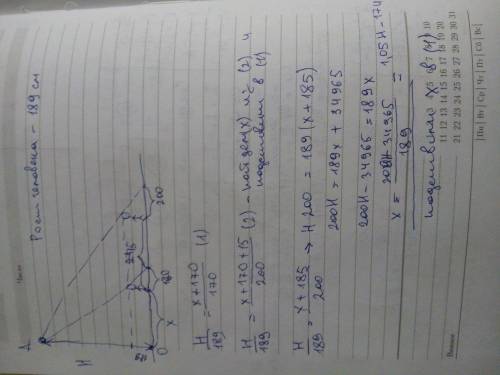 Число
Рост человека - 189 см
A
H
x
180
200
O
H/189 = x+170/170 (1)
H/189 = x+170+15/200 (2) - найдем (x) из (2) и
подставим в (1)
H/189 = x+185/200 → H 200 = 189(x+185)
200H = 189x + 34965
200H - 34965 = 189x
x = 200H - 34965/189 = 1,05H - 174
подставим x в (1)
Пн Вт Ср Чт Пт Сб Вс
11 12 13 14 15 16 17 18 19 20
21 22 23 24 25 26 27 28 29 30 31
Важно